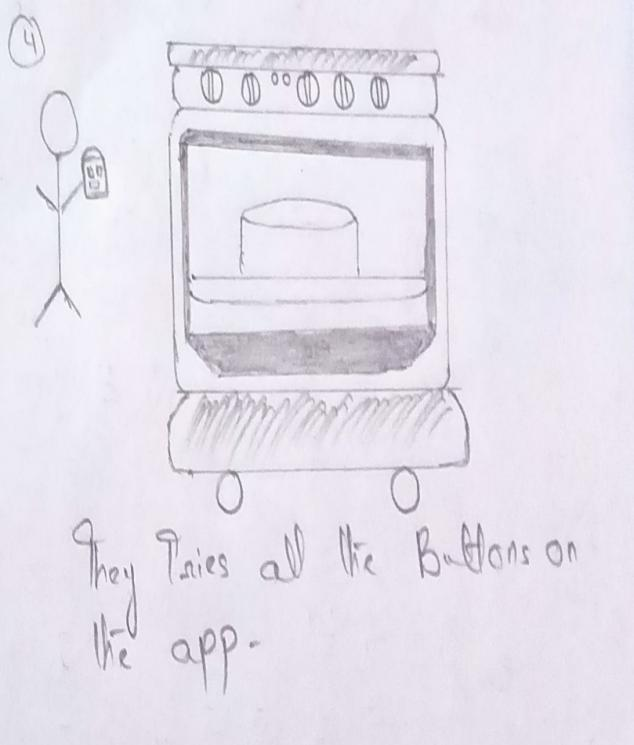 4
They Tries all the Buttons on
the app.